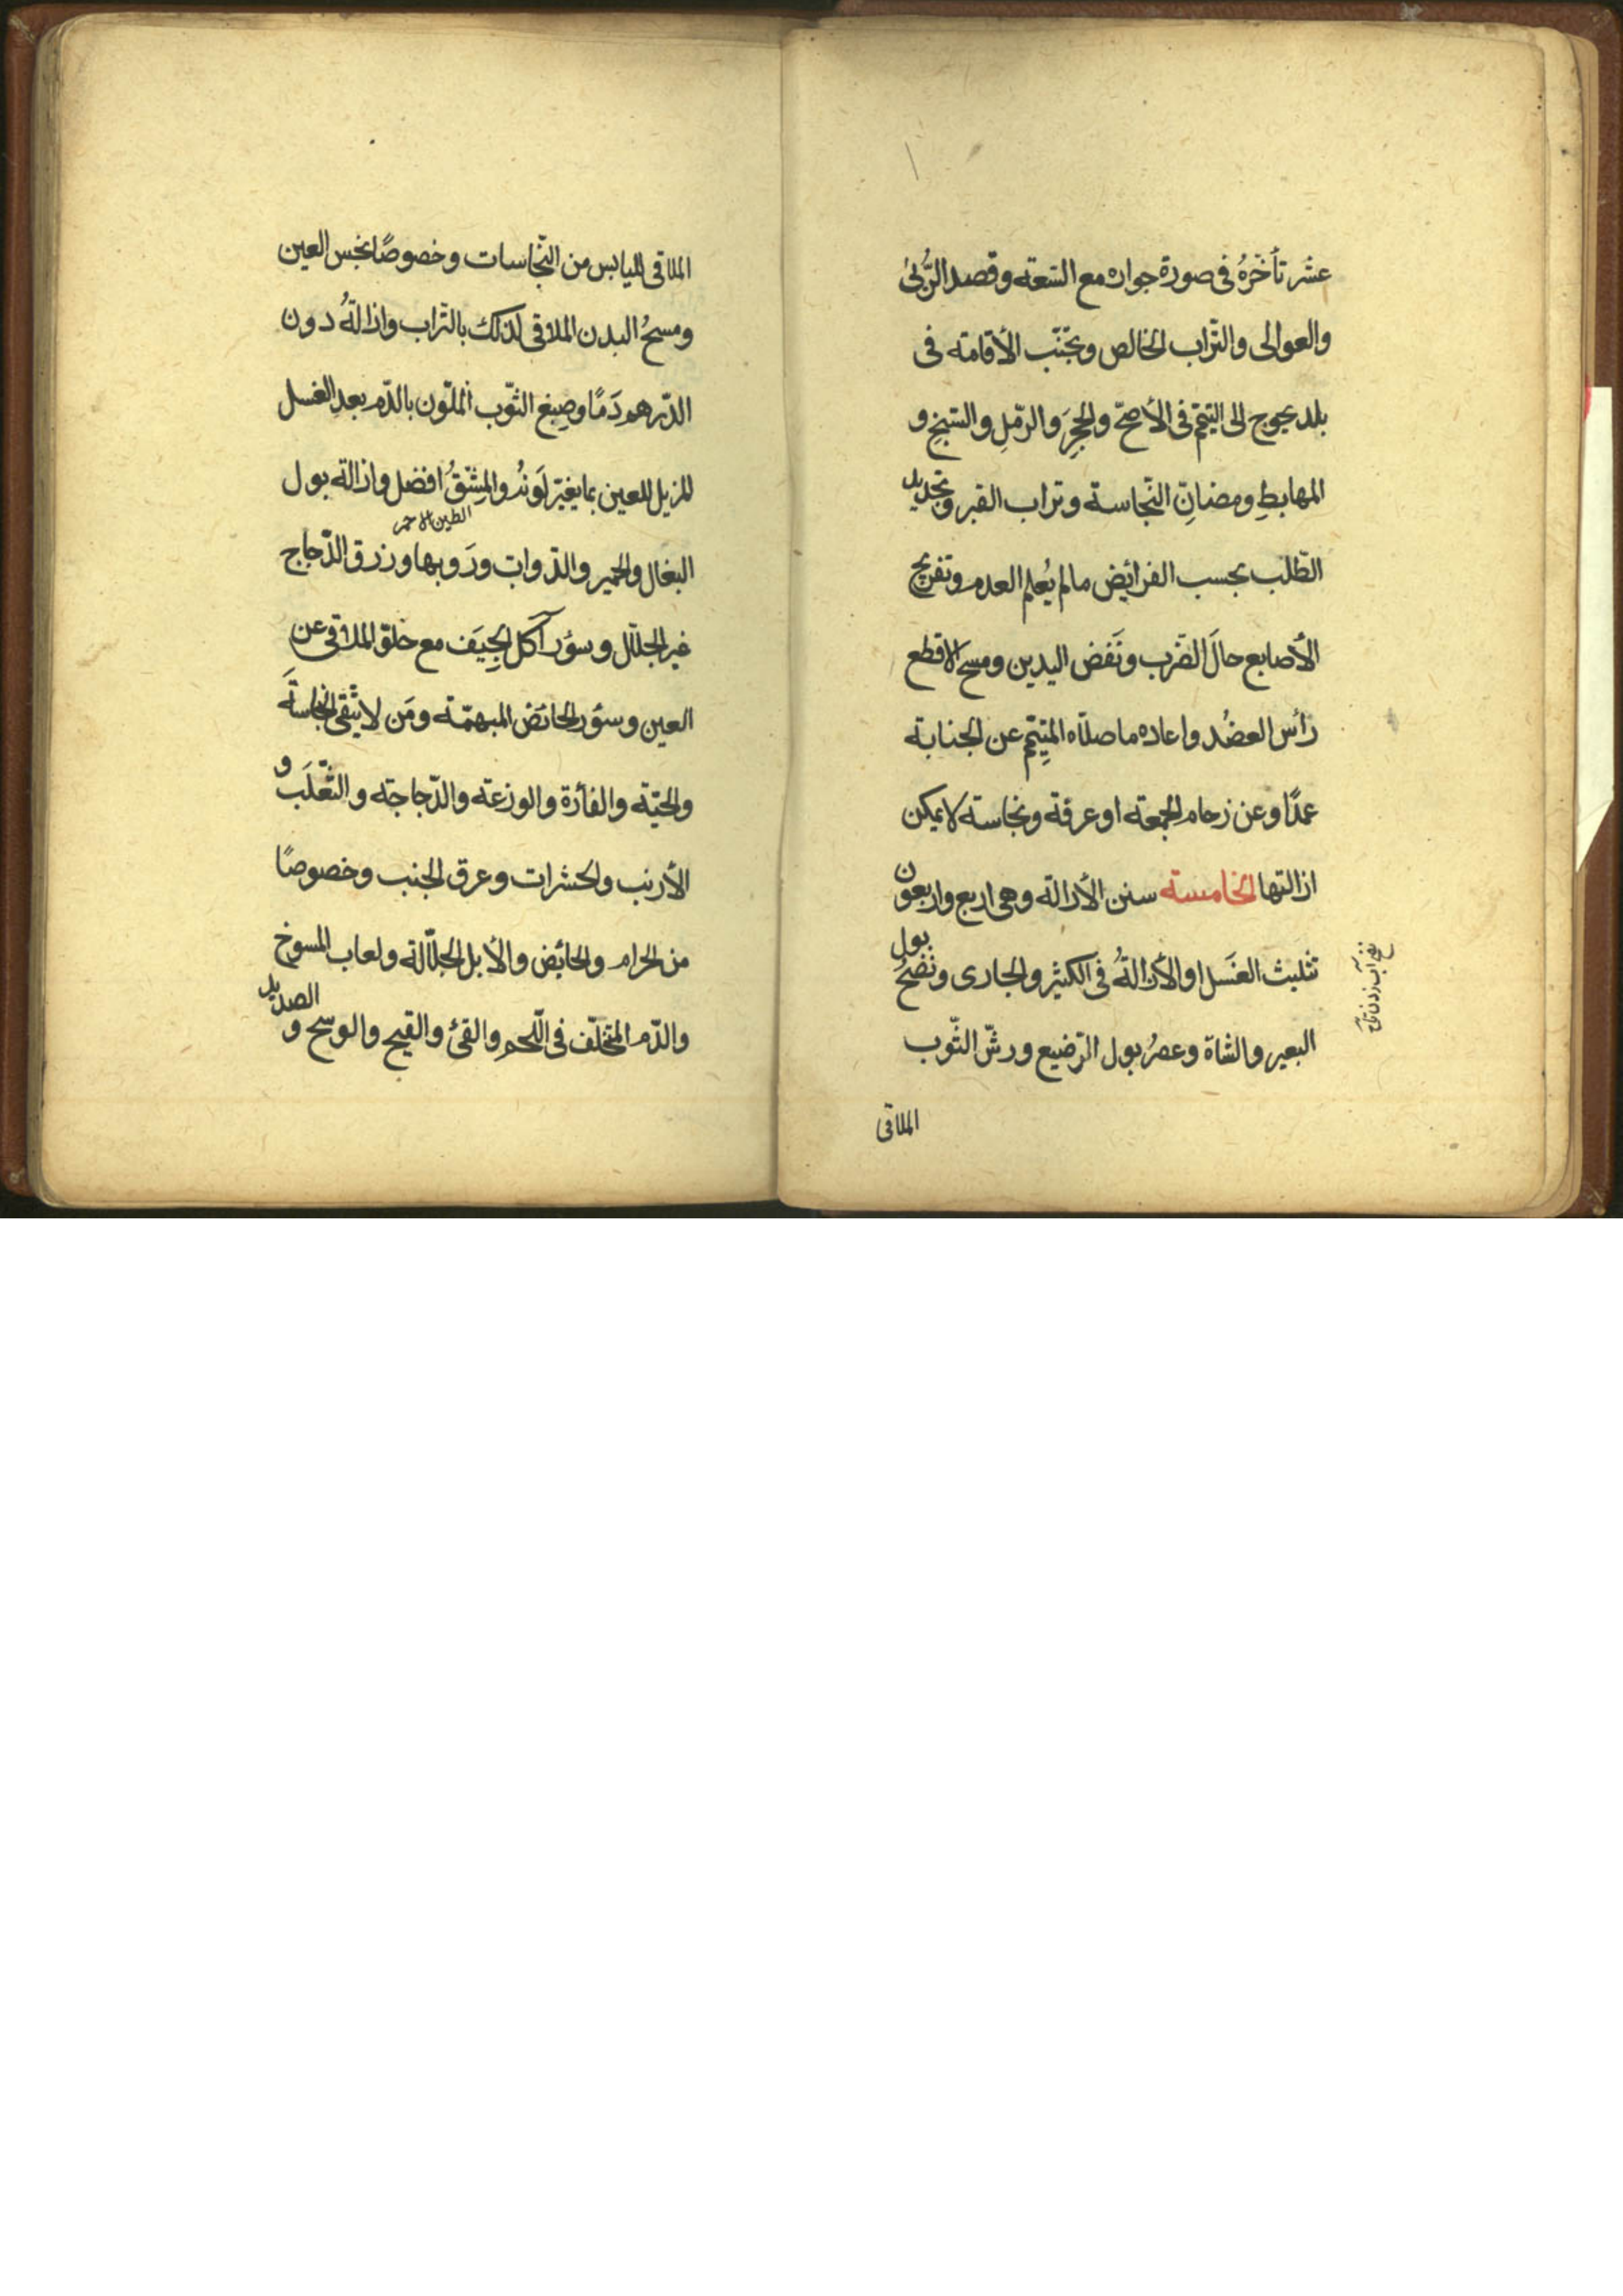 عشر تأخّرهُ فى صورة جوازه مع السّعة وقصد الرُّبىٰ
والعوالى والتّراب الخالص وتجنّب الأقامة فى
بلد يحوج الى التيمّم فى الأصحّ والحجرَ والرّملِ والسّبخ و
المهابطِ ومضانِّ النّجاسة وتراب القبر وتجديد
الطّلب بحسب الفرائض مالم يُعلم العدم وتفريج
الأصابع حالَ الضّرب ونَفض اليدين ومسح الاقطع
رأس العضُد واعاده ما صلّاه المتيمِّم عن الجنابة
عمدًا وعن زحام الجمعة او عرفة ونجاسة لا يمكن
ازالتها الخامسة سنن الأزالة وهى اربع واربعون
تثليث الغَسل والأزالةُ فى الكثير والجارى ونضحُ بول
البعير والشاة وعصرُ بول الرّضيع ورشّ الثّوب
الملاقى
الملاقى لليابس من النّجاسات وخصوصًا نجس العين
ومسحُ البدن الملاقى لذلك بالتّراب وازالةُ دون
الدّرهم دَمًا وصِبغ الثّوب الملّون بالدّم بعد الغسل
المزيل للعين بما يغيّر لَونهُ والمِشْقُ افضل وازالة بول
الطين الاحمر
البغال والحمير والدّوابّ ورَوبها وزرق الدّجاج
غير الجلّال وسؤر آكل الجِيَف مع خلوّ الملاقى عن
العين وسؤر الحائض المبهمّة ومَن لا يتّقى النجاسةَ
والحيّة والفأرة والوزغة والدّجاجة والثّعلَب و
الأرنب والحشرات وعرق الجنب وخصوصًا
من الحرام والحائض والأبل الجلّالة ولعاب المسوخ
والدّم المتخلّف فى اللّحم والقئ والقيح والوسخ و الصديد